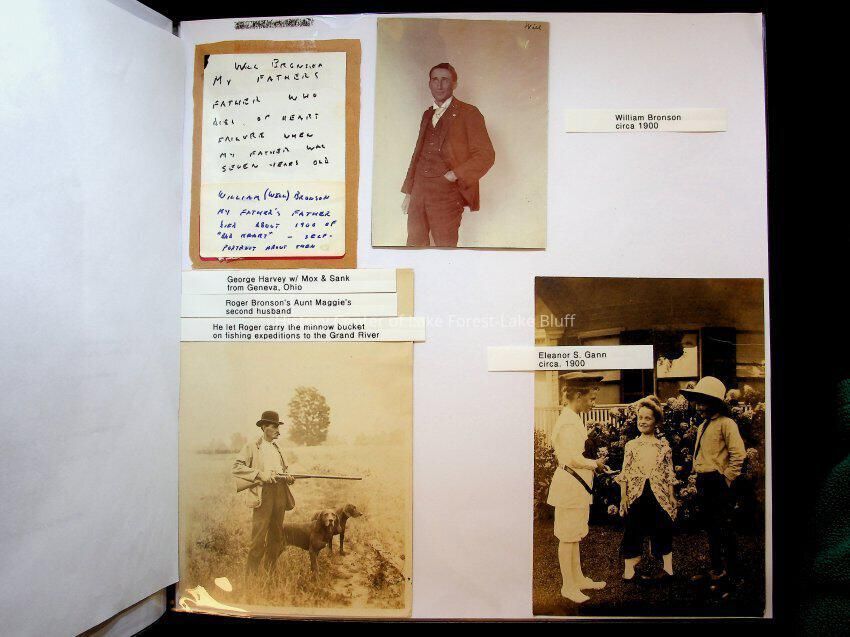 WILL BRONSON
MY FATHERS
FATHER WHO
DIED OF HEART
FAILURE WHEN
MY FATHER WAS
SEVEN YEARS OLD
WILLIAM (WILL) BRONSON
MY FATHER'S FATHER
DIED ABOUT 1900 OF
"BAD HEART" - SELF-
PORTRAIT ABOUT THEN
Will
William Bronson
circa 1900
George Harvey w/ Mox & Sank
from Geneva, Ohio
Roger Bronson's Aunt Maggie's
second husband
He let Roger carry the minnow bucket
on fishing expeditions to the Grand River
of Lake Forest-Lake Bluff
Eleanor S. Gann
circa. 1900